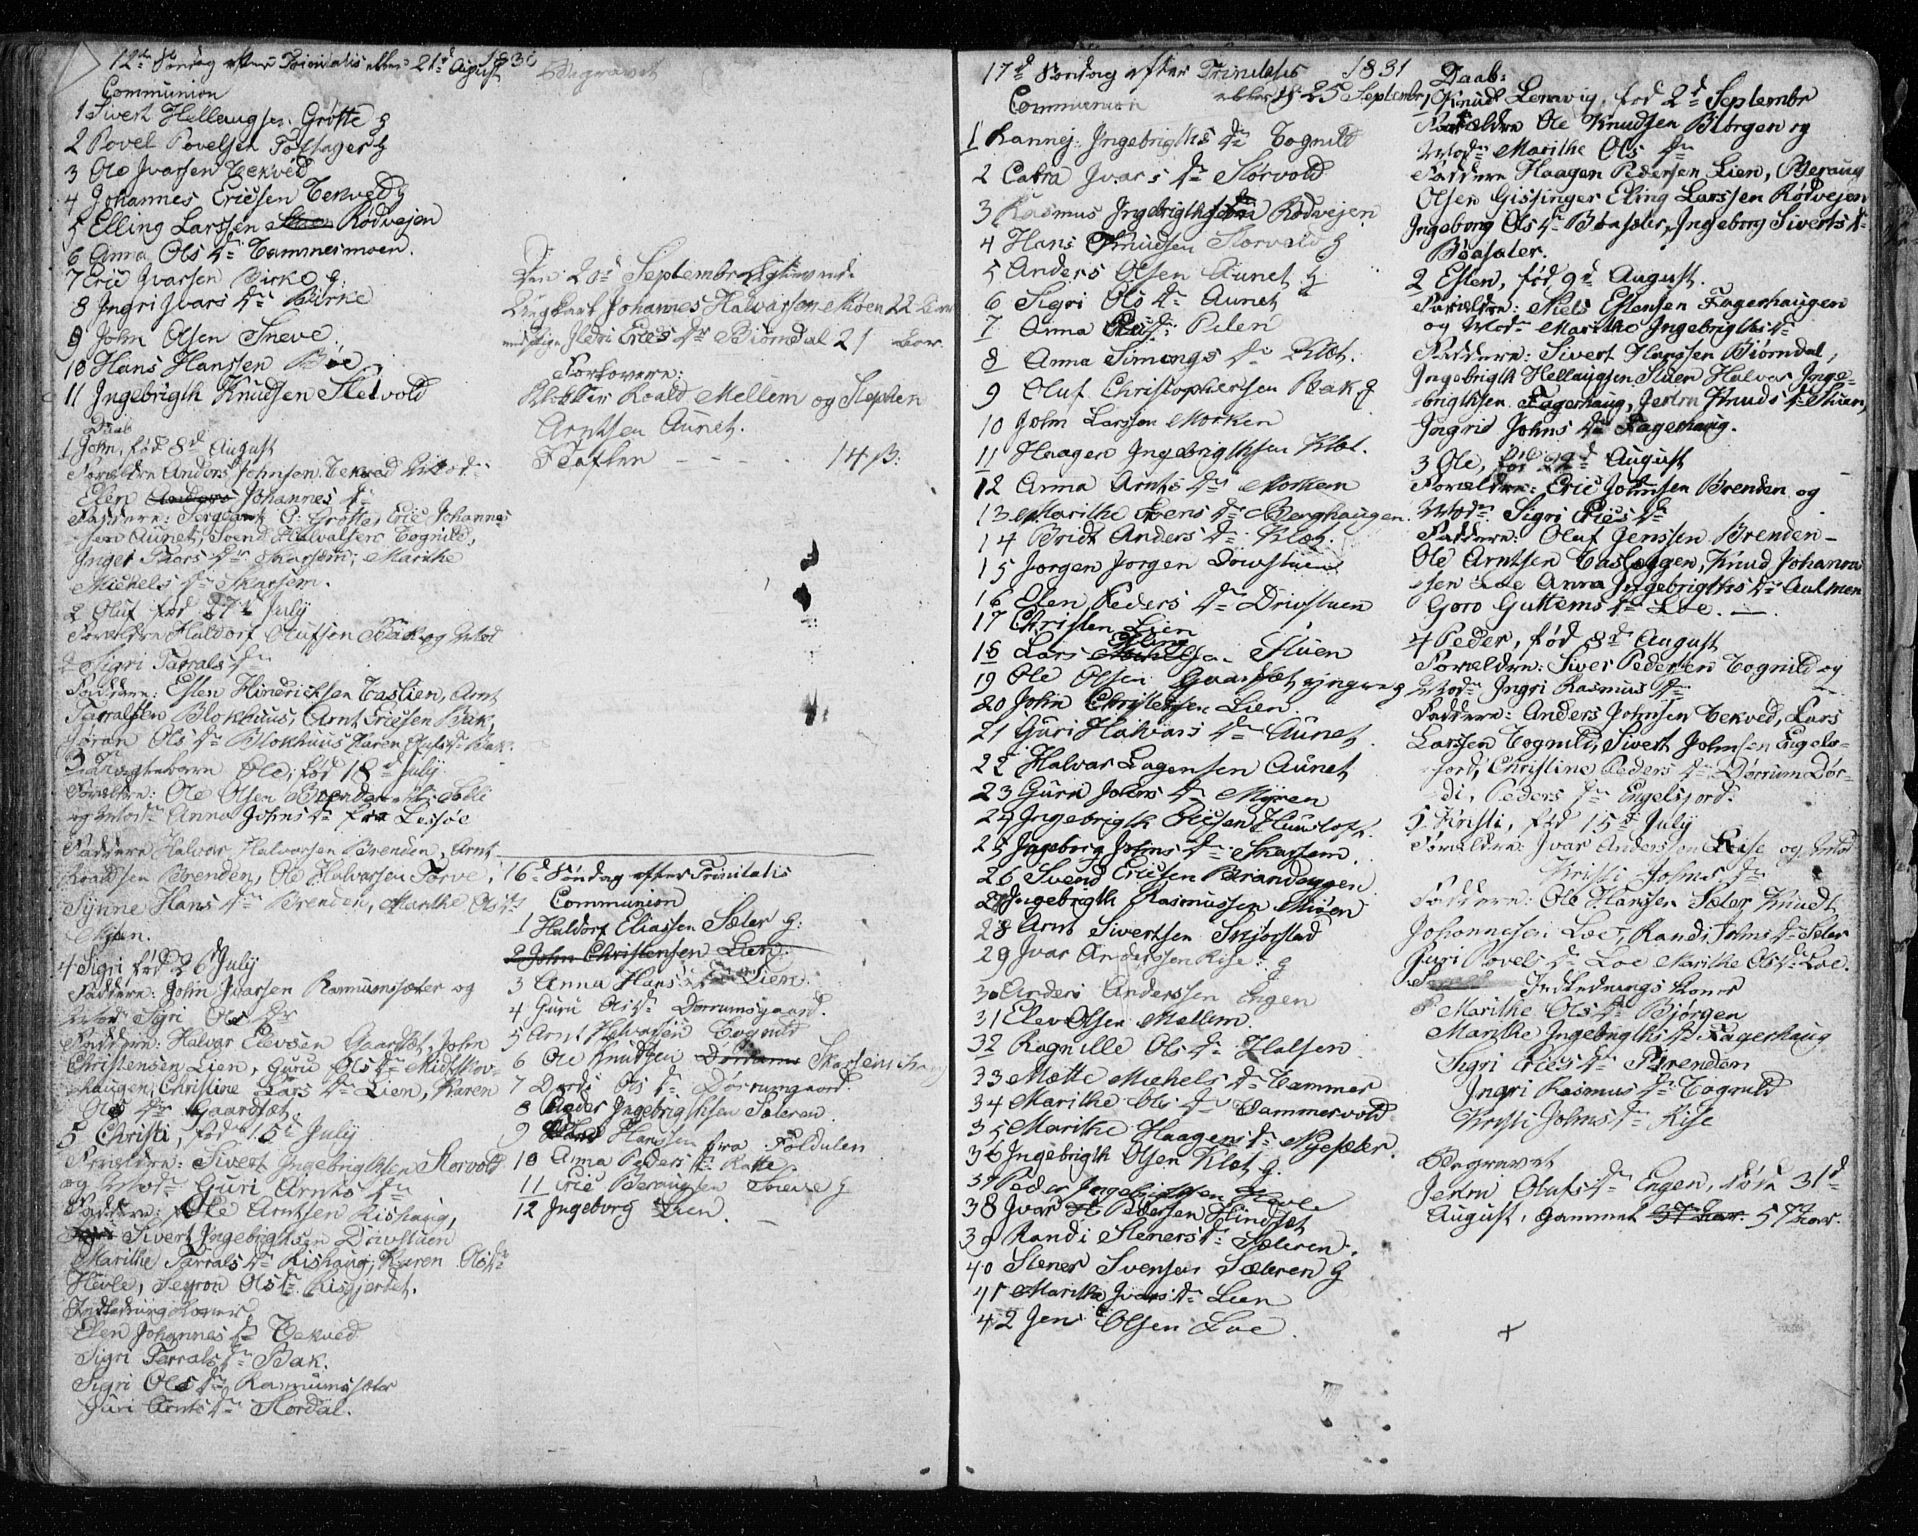 12te Søndag efter Trinitatis eller 21d August 1830
Communion
1 Sivert Hellaugsen Grøtte g
2 Povel Povelsen Toftager g
3 Ole Jvarsen Tekved
4 Johannes Ericsen Tekved g
5 Elling Larssen Rødvejen
6 Anna Ols dr Tammesmoen.
7 Eric Jvarsen Birke g.
8 Jngri Jvars dr Birke
9 John Olsen Sneve
10 Hans Hanssen Bøe
11 Jngebrigth Knudsen Sletvold
Daab
1 John, fød 8d August
Forældre Anders Johnsen Tekved Mod
Elen Anders Johannes dr
Faddere: Sergeant O: Grøtte, Eric Johannes
sen Aunet, Svend Halvalsen Tognild,
Jnger Thors dr Skarsem, Marithe
Michels dr Skarsem.
2 Oluf fød 27d July
Forældre Haldorf Olufsen Bak og Mod
Sigri Tarrals dr
Faddere: Eslen Hindrichsen Caslien, Arnt
Tarralsen Blokhuus, Arnt Ericsen Bak,
Gøran Ols dr Blokhuus Karen Olufs dr Bak.
3 Ole, fød 18d July
Forældre: Ole Olsen
og Mod Anna Johns dr fra Lessøe
Faddere Halvar Halvarsen Brenden, Arnt
Brenden, Ole Halvarsen Torve,
Synne Hans dr Brenden, Marithe Ols dr
Myren.
4 Sigri fød 26d July
Faddere: John Jvarsen Rasmussæter og
Mod Sigri Ols dr
Faddere: Halvar Elevsen Gaardsæt, John
Christensen Lien, Guru Ols dr Midtskov-
haugen, Christine Lars dr Lien, Karen
Ols dr Gaardsæt
5 Christi, fød 15d July
Forældre: Sivert Jngebrigthsen Storvold
og Mod Guri Arnts dr
Faddere: Ole Arntsen Rishaug,
Sivert Jngebrigthsen Drivstuen
Marithe Tarrals dr Rishaug, Karen Ols dr
Hevle, Seyron Ols dr Risgjerdet.
Jndledning Koner
Elen Johannes dr Tekved
Sigri Tarrals dr Bak.
Sigri Ols dr Rasmussæter
Guri Arnts dr Stordal.
Begravet
Den 20d September
Ungkarl Johannes Halvarson Moen 22 Aar
Jldri Erics dr Bjørndal 21 Aar
Forlovere:
Klokker Roald Mellem og Stephen
Arntsen Aunet.
Taften - - - 14 ß.
16d Søndag efter Trinitatis
Communion
1 Haldorf Eliassen Sæter g:
2 John Christensen Lien g.
3 Anna Hans dr Lien.
4 Guru Ols dr Dørrumsgaard.
5 Arnt Halvarsen Tognild
6 Ole Knudsen Skarsem
7 Dordi Ols dr Dørrumgaard
8 Peder Jngebrigthsen Sæteren
9 Hanssen fra Foldalen
10 Anna Peders dr Ratte
11 Eric Beraugsen Sneve g
12 Jngeborg Lien
17d Søndag efter Trinitatis 1831
eller d 25 Septembr
Communion
1 Rannej Jngebrigths dr Tognild
2 Catra Jvars dr Storvold
3 Rasmus Jngebrigthsen Rødvejen
4 Hans Knudsen Storvold g
5 Anders Olsen Aunet g
6 Sigri Ols dr Aunet
7 Anna Pelen
8 Anna Simengs dr Klæt.
9 Oluf Christophersen Bak g
10 John Larssen Morken
11 Haagen Jngebrigthsen Klæt.
12 Anna Arnts dr Morken
13 Marithe Svens dr Berghaugen.
14 Bridt Anders dr Klæt.
15 Jørgen Jørgen Drivstuen
16 Elen Peders dr Drivstuen
17 Christen Lien
18 Lars Eling Stuen
19 Ole Olsen Gaardsæt
20 John Christensen Lien
21 Guri Halvars dr Aunet
22 Halvar Lagensen Aunet
23 Guru Johns dr Myren
24 Jngebrigth Olsen
25 Jngeborg Johns dr Skarsem
26 Svend Ericsen Brandeggen
27 Jngebrigth Rasmussen Moen
28 Arnt Sivertsen Skjørstad
29 Jvar Anderssen Rise: g
30 Anders Anderssen Engen
31 Elev Olsen Mellem.
32 Ragnille Ols dr Halsen
33 Mætte Michels dr Tammer
34 Marithe Ols dr Tammervold
35 Marithe Haagens dr Nyesæter.
36 Jngebrigth Olsen Klæt g.
37 Peder Jngebrigthsen Hevle
38 Jvar Pedersen Hindsæt
39 Randi Steners dr Sæteren.
40 Stener Svensen Sæteren g
41 Marithe Jvars dr Lien
42 Jens Olsen Loe.
Daab:
1 Knudt Lemvig, fød 2d Septembr
Forældre Ole Knudsen Biørgen og
Modr Marithe Ols dr
Faddere Haagen Pedersen Lien, Beraug
Olsen Gissinger Eling Larssen Rødvejen
Jngeborg Ols dr Bøasæter, Jngeborg Siverts dr
Bøasæter.
2 Eslen, fød 9d August.
Forældre: Niels Eslensen Fagerhaugen
og Modr Marithe Jngebrigths dr
Faddere: Sivert Hanssen Biørndal,
Jngebrigth Hellaugsen Stuen Halvar Jnge-
brigthsen Fagerhaug, Jertru Knuds dr Stuen,
Jngrid Johns dr Fagerhaug.
3 Ole, fød August
Forældre: Eric Johnsen Brenden og
Modr Sigri Erics dr
Faddere: Oluf Jenssen Brenden -
Ole Arntsen Casleggen, Knud Johanne
sen Loe Anna Jngebrigths dr Aalmen
Goro Guttems dr Loe.
4 Peder, fød 8d August
Forældre: Siver Pedersen Tognild og
Modr Jngri Rasmus dr
Faddere: Anders Johnsen Tekved, Lars
Larssen Tognild, Sivert Johnsen Engels-
jord, Christine Peders dr Dørrum Dor-
di, Peders dr Engelsjord.
5 Kristi, fød 15d July
Forældre: Jvar Anderssen Rise og Mod
Kristi Johns dr
Faddere: Ole Hanssen Sæter Knudt
Johannesen Loe, Randi Johns dr Sæter
Guri Povels dr Loe Marithe Ols dr Loe.
Jndlednings Koner
Marithe Ols dr Bjørgen
Marithe Jngebrigths dr Fagerhaug
Sigri Erics dr Brenden
Jngri Rasmus dr Tognild
Kristi Johns dr Rise
Begravet
Jertru Olufs dr Engen, døde 31d
August, gammel 37 Aar. 57 Aar.